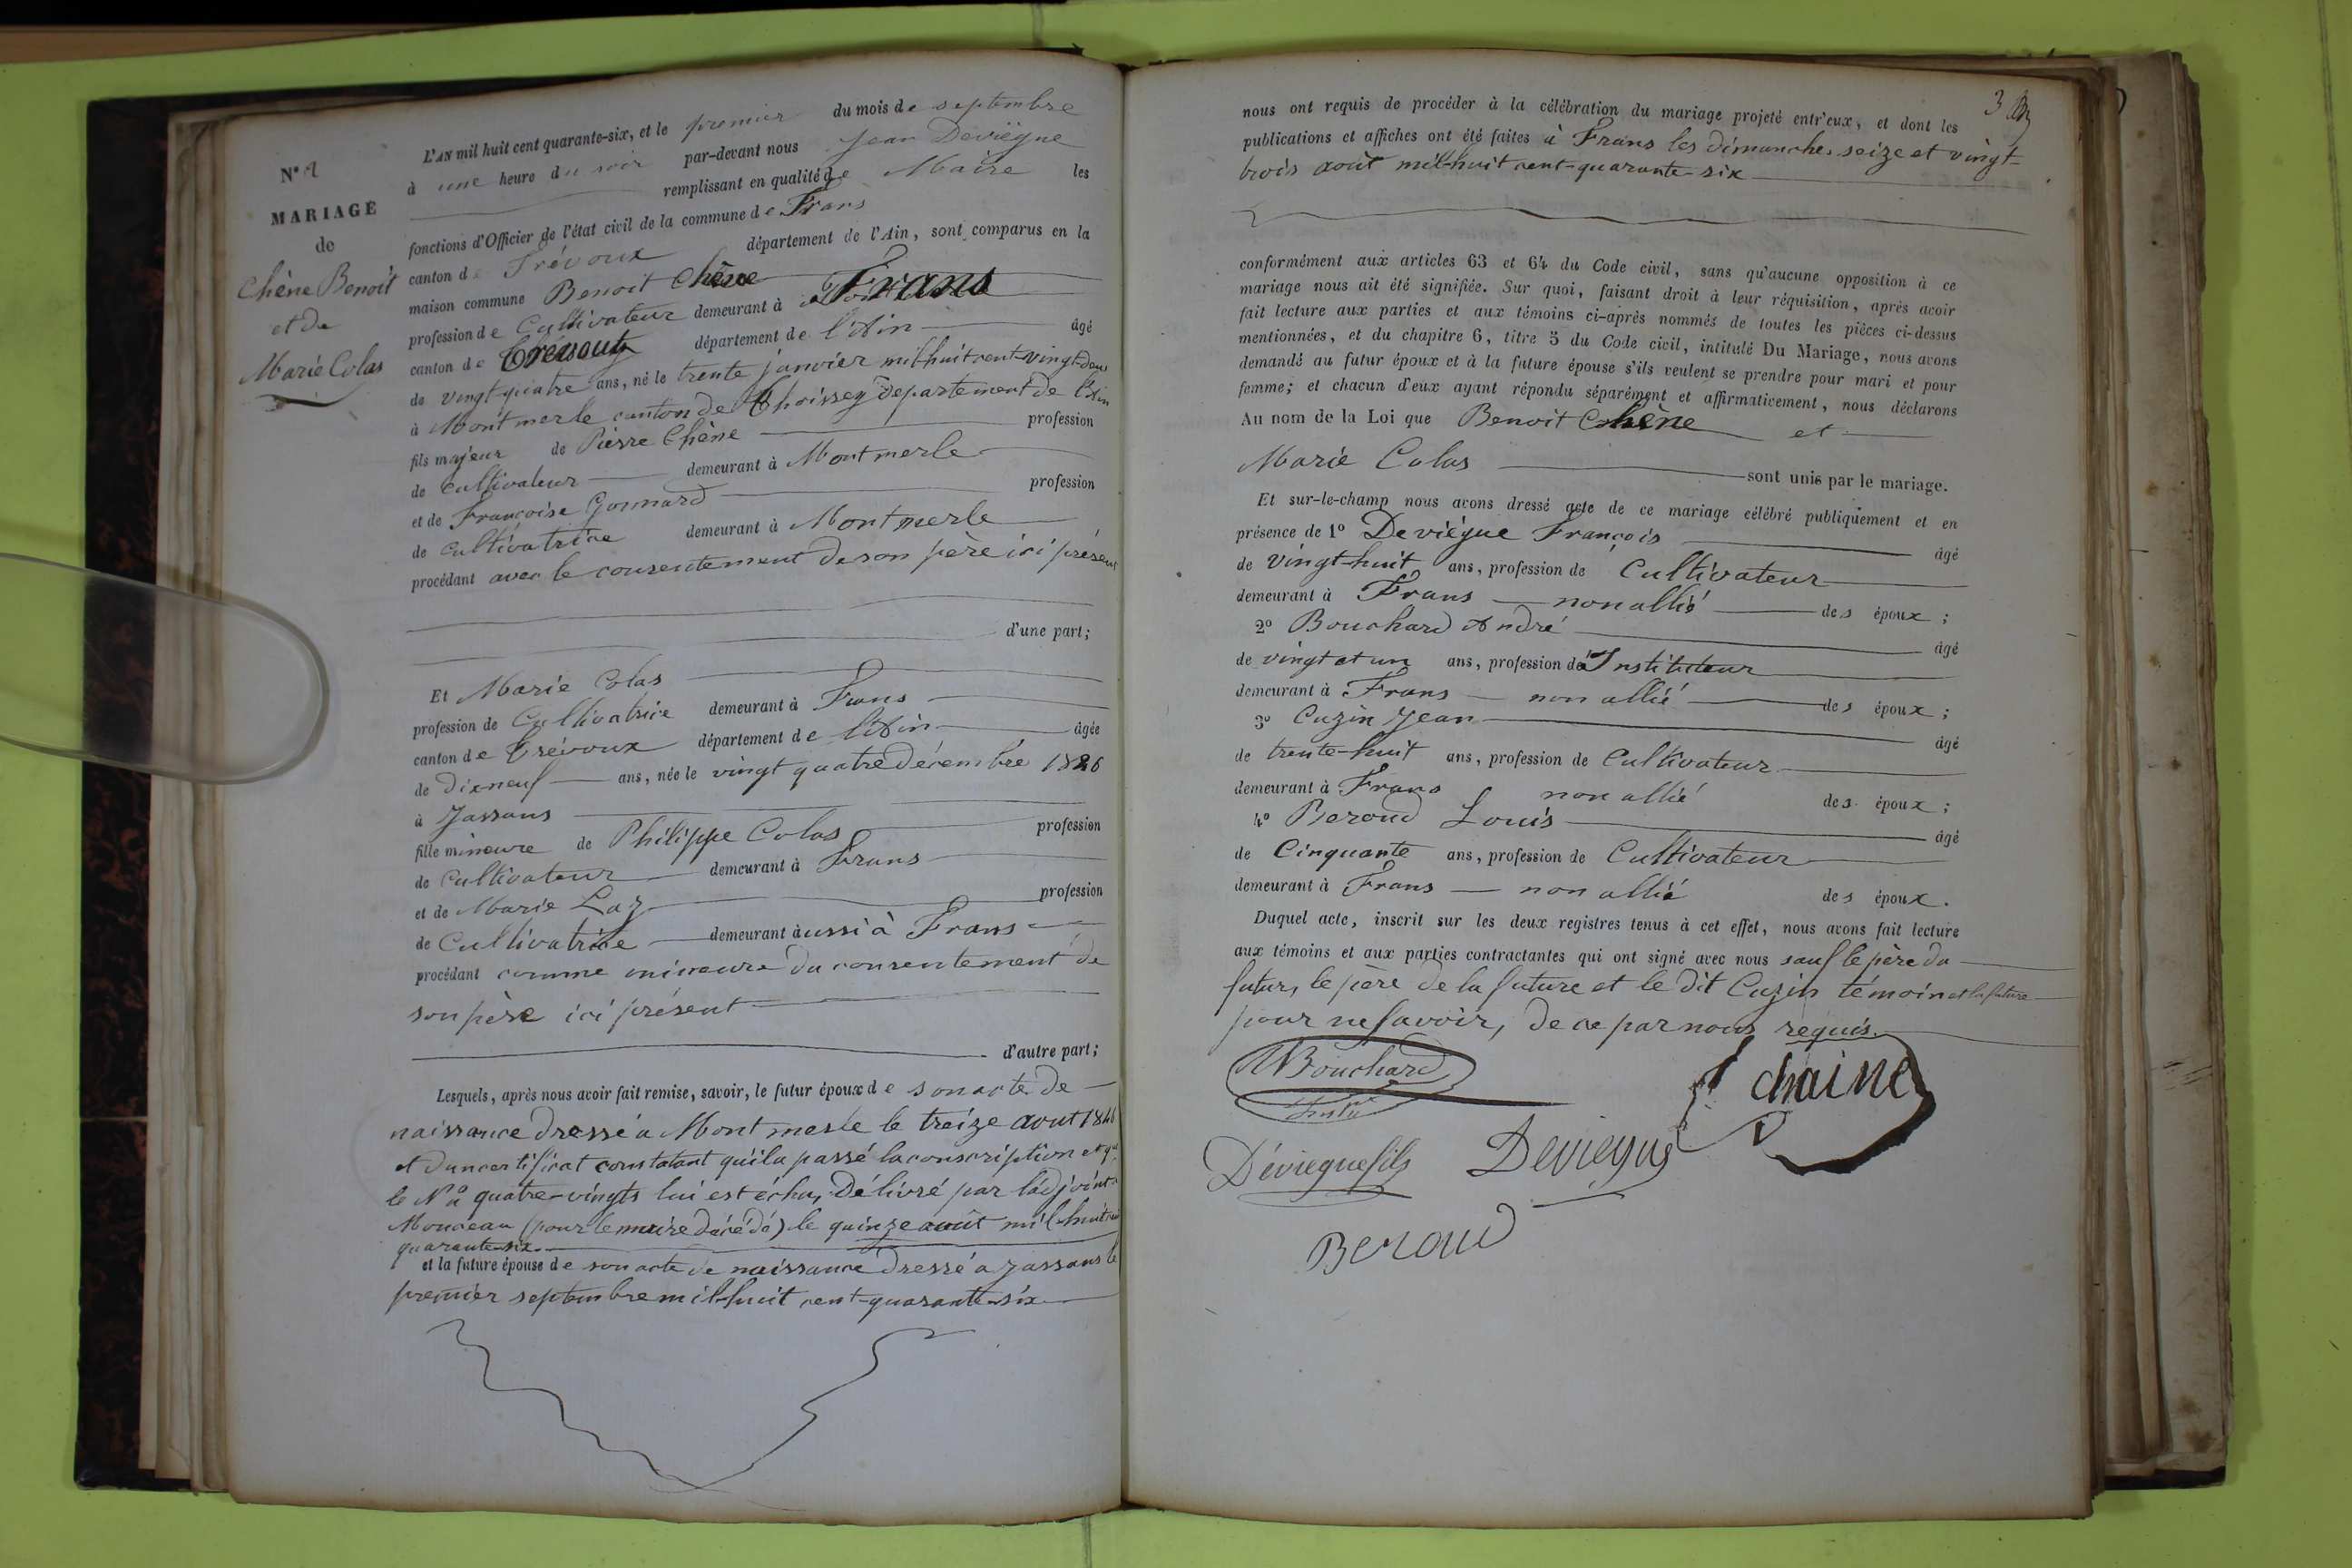 N°
MARIAGE
de
Chêne Benoit
et de
Marie Colas
L'AN mil huit cent quarante-six, et le premier du mois de septembre
à une heure du soir par-devant nous Jean Deviégue
remplissant en qualité de Maire les
fonctions d'Officier de l'état civil de la commune de Frans
canton de Trévoux département de l'Ain, sont comparus en la
maison commune Benoit Chêne
profession de Cultivateur demeurant à Frans
canton de Trévoux département de l'Ain âgé
de vingt quatre ans, né le trente janvier mil-huit cent-vingt-deux
à Montmerle canton de Thoissey département de l'Ain
fils majeur de Pierre Chêne profession
de cultivateur demeurant à Montmerle
et de Françoise Gonnard profession
de cultivatrice demeurant à Montmerle
procédant avec le consentement de son père ici présent
d'une part;
Et Marie Colas
profession de Cultivatrice demeurant à Frans
canton de Trévoux département de l'Ain âgée
de Dixneuf ans, née le vingt quatre décembre 1826
à Jassans
fille mineure de Philippe Colas profession
de Cultivateur demeurant à Frans
et de Marie Laz profession
de Cultivatrice demeurant àussi à Frans
procédant comme mineure du consentement de
son père ici présent
d'autre part;
Lesquels, après nous avoir fait remise, savoir, le futur époux de son acte de
naissance dressé à Montmerle le treize aout 1846
et d'un certificat constatant qu'il a passé la conscription et que
le N° quatre-vingts lui est échu, Délivré par l'adjoint
Monceau (pour le maire décédé) le quinze août mil-huit cent
quarante-six
et la future épouse de son acte de naissance dressé à Jassans le
premier septembre mil-huit cent-quarante-six
3
nous ont requis de procéder à la célébration du mariage projeté entr'eux, et dont les
publications et affiches ont été faites à Frans les dimanches seize et vingt-
trois août mil-huit cent-quarante-six
conformément aux articles 63 et 64 du Code civil, sans qu'aucune opposition à ce
mariage nous ait été signifiée. Sur quoi, faisant droit à leur réquisition, après avoir
fait lecture aux parties et aux témoins ci-après nommés de toutes les pièces ci-dessus
mentionnées, et du chapitre 6, titre 5 du Code civil, intitulé Du Mariage, nous avons
demandé au futur époux et à la future épouse s'ils veulent se prendre pour mari et pour
femme; et chacun d'eux ayant répondu séparément et affirmativement, nous déclarons
Au nom de la Loi que Benoit Chêne et
Marie Colas sont unis par le mariage.
Et sur-le-champ nous avons dressé acte de ce mariage célébré publiquement et en
présence de 1° Deviégue François âgé
de vingt-huit ans, profession de Cultivateur
demeurant à Frans non allié des époux;
2° Bouchard André âgé
de vingt et un ans, profession d'Instituteur
demeurant à Frans non allié des époux;
3° Cuzin Jean âgé
de trente-huit ans, profession de Cultivateur
demeurant à Frans non allié des époux;
4° Beroud Louis âgé
de Cinquante ans, profession de Cultivateur
demeurant à Frans non allié des époux.
Duquel acte, inscrit sur les deux registres tenus à cet effet, nous avons fait lecture
aux témoins et aux parties contractantes qui ont signé avec nous sauf le père du
futur, le père de la future et le dit Cuzin témoin et la future
pour ne savoir, de ce par nous requis.
Bouchard
chaine
Déviegue fils Deviegue
Beroud